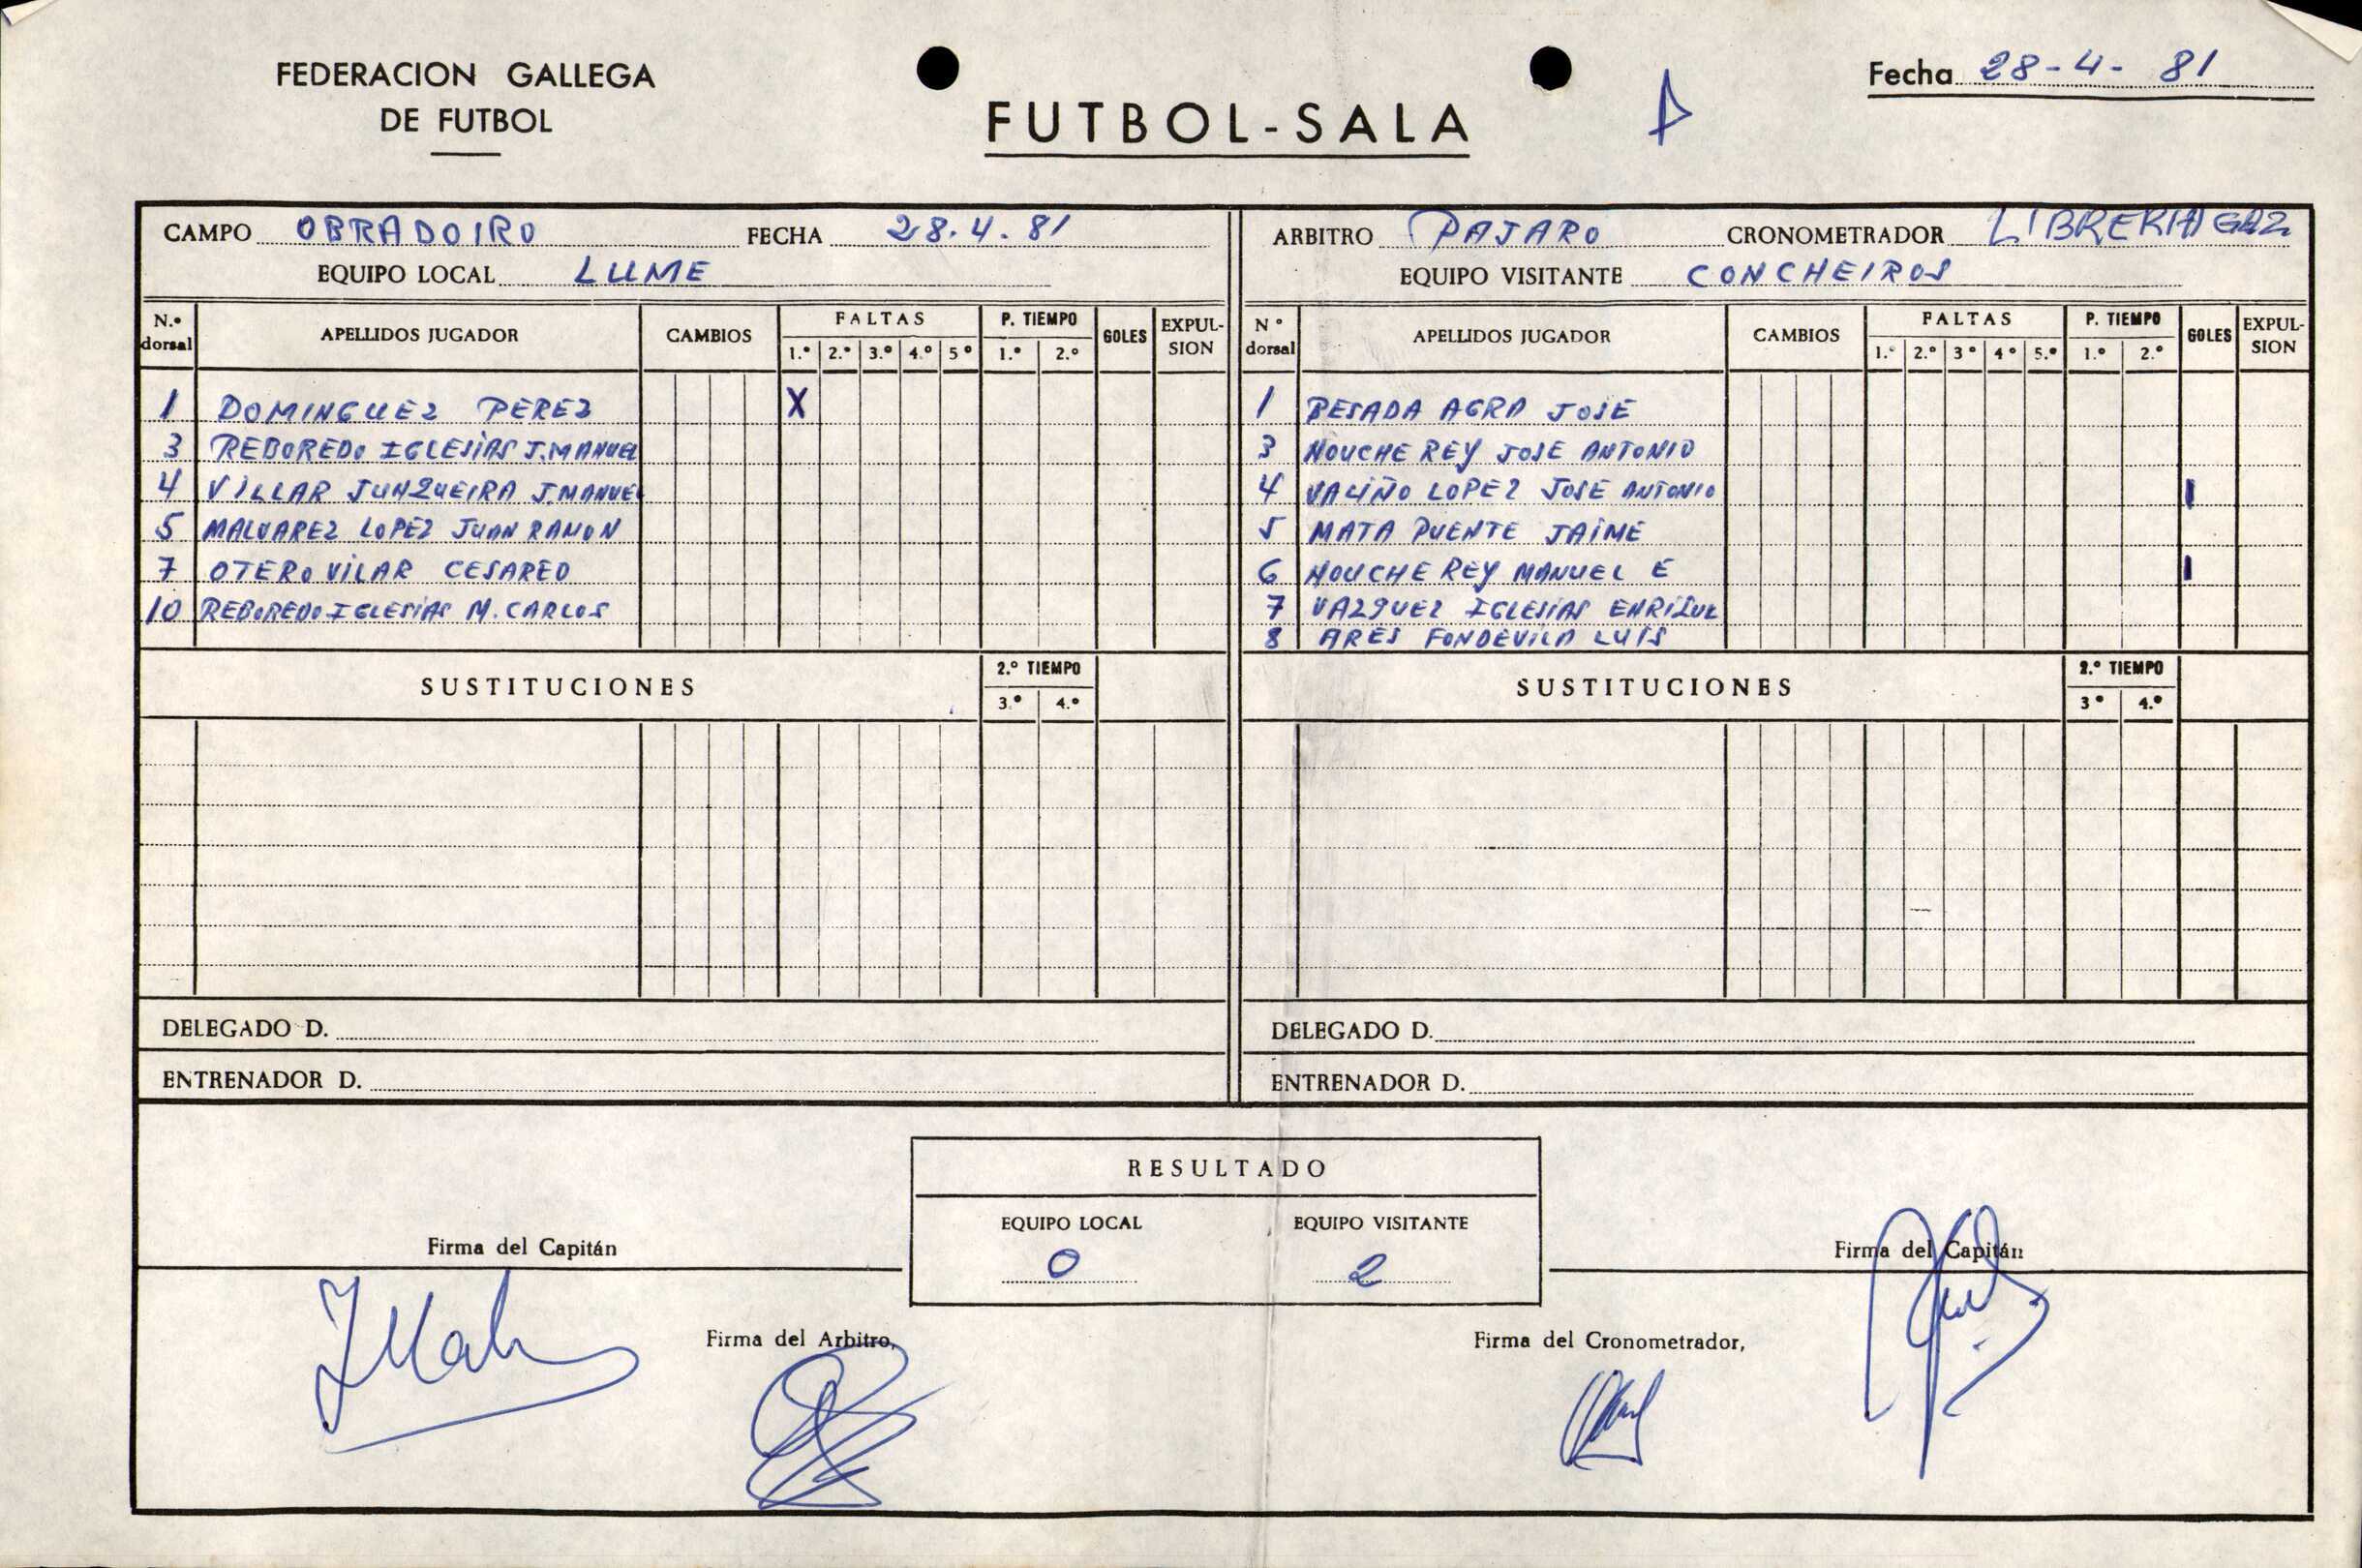 FEDERACION GALLEGA
DE FUTBOL
FUTBOL-SALA
Fecha 28-4-81
CAMPO OBRADOIRO FECHA 28.4.81
EQUIPO LOCAL LUME
N.º dorsal APELLIDOS JUGADOR CAMBIOS FALTAS 1.º 2.º 3.º 4.º 5º P. TIEMPO 1.º 2.º GOLES EXPUL-SION
1 DOMINGUEZ PEREZ X
3 REBOREDO IGLESIAS J.MANUEL
4 VILLAR JUNQUEIRA J.MANUEL
5 MALVAREZ LOPEZ JUAN RAMON
7 OTERO VILAR CESAREO
10 REBOREDO IGLESIAS M. CARLOS
SUSTITUCIONES 2.º TIEMPO 3.º 4.º
DELEGADO D.
ENTRENADOR D.
ARBITRO PAJARO CRONOMETRADOR LIBRERIA
EQUIPO VISITANTE CONCHEIROS
Nº dorsal APELLIDOS JUGADOR CAMBIOS FALTAS 1.º 2.º 3º 4º 5.º P. TIEMPO 1.º 2.º GOLES EXPUL-SION
1 PESADA AGRA JOSE
3 NOUCHE REY JOSE ANTONIO
4 VALIÑO LOPEZ JOSE ANTONIO I
5 MATA PUENTE JAIME
6 NOUCHE REY MANUEL E I
7 VAZQUEZ IGLESIAS ENRIQUE
8 ARES FONDEVILA LUIS
SUSTITUCIONES 2.º TIEMPO 3º 4.º
DELEGADO D.
ENTRENADOR D.
RESULTADO
EQUIPO LOCAL EQUIPO VISITANTE
0 2
Firma del Capitán
Firma del Capitán
Firma del Arbitro,
Firma del Cronometrador,